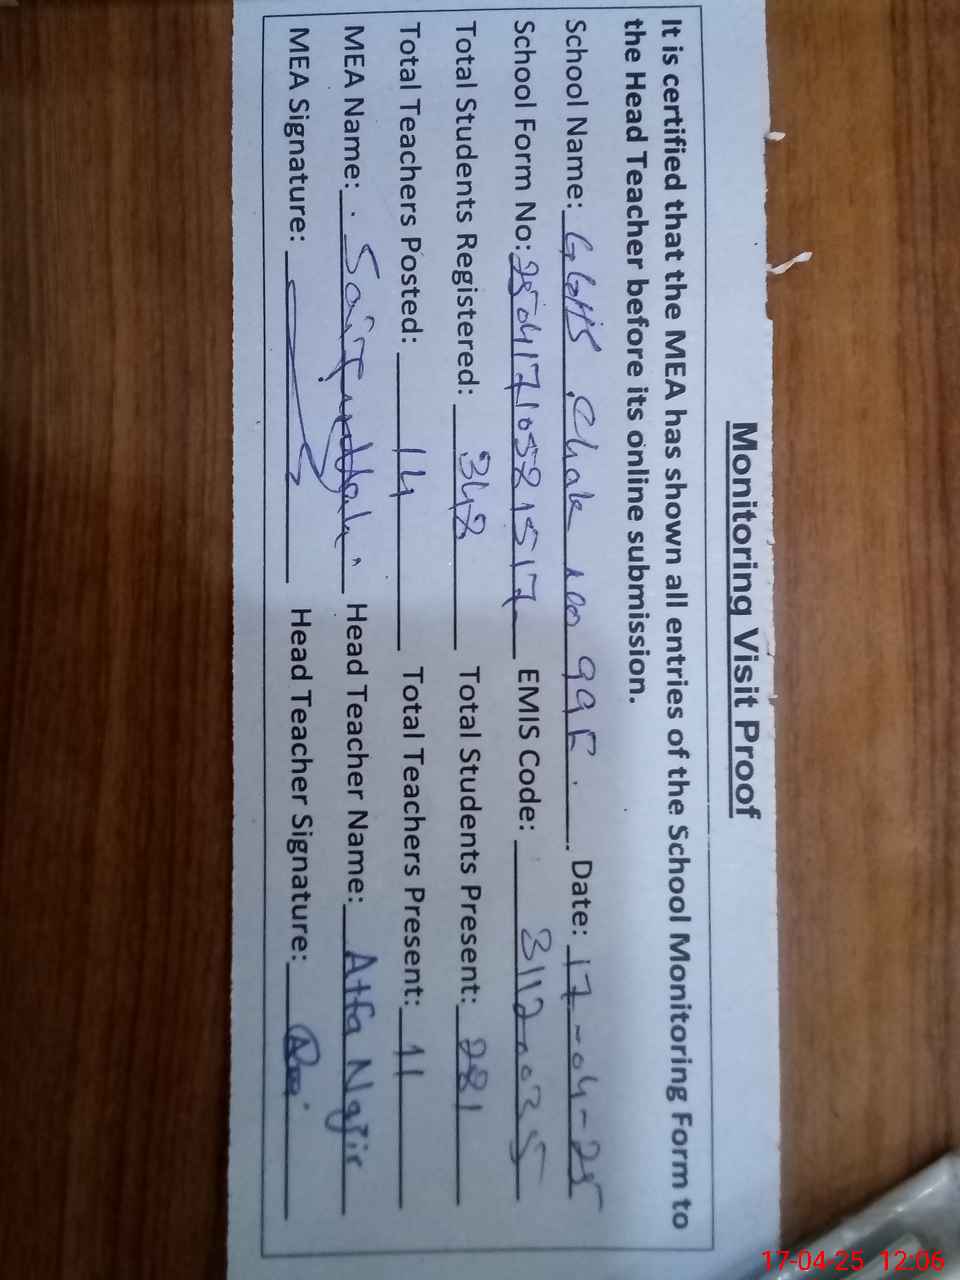 Monitoring Visit Proof
It is certified that the MEA has shown all entries of the School Monitoring Form to
the Head Teacher before its online submission.
School Name: GGHS Chak no 99F. Date: 17-04-25
School Form No: EMIS Code: 31120035
Total Students Registered: 348 Total Students Present: 281
Total Teachers Posted: 14 Total Teachers Present: 11
MEA Name: Head Teacher Name: Atfa Nazir
MEA Signature: Head Teacher Signature:
17-04-25 12:06